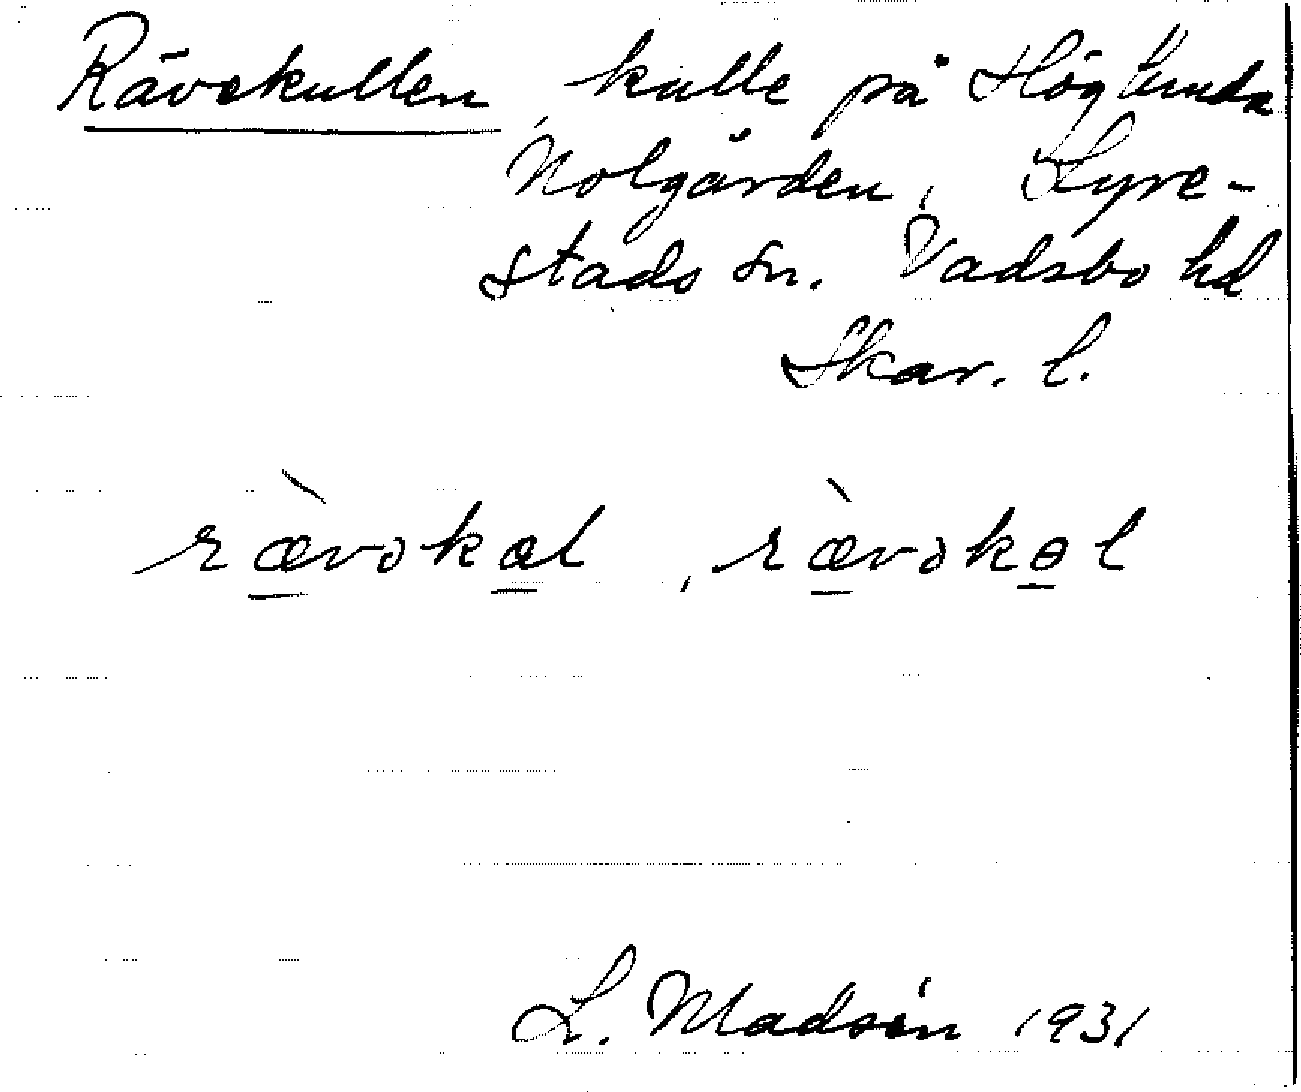 Rävekullen, kulle på Höglunda
Nolgården, Lyre-
stads sn. Vadsbo hd
Skar. l.
rævəkəl, rævəkəl
L. Madsén 1931